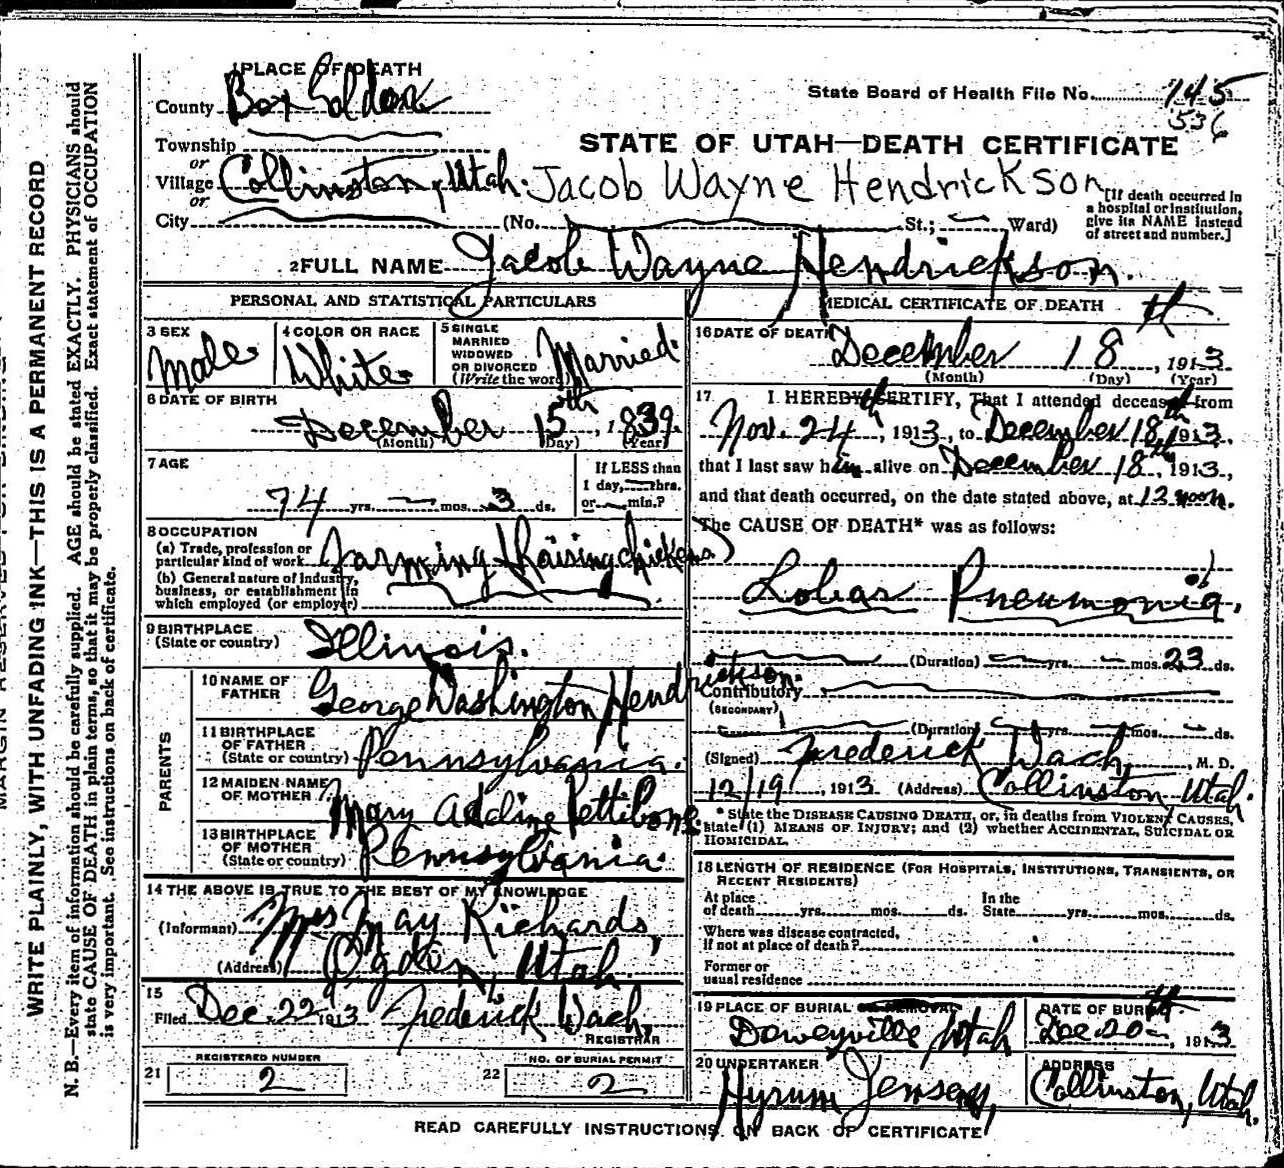 PLACE OF DEATH
County Box Elder
State Board of Health File No. 145
536
Township
or
STATE OF UTAH—DEATH CERTIFICATE
Village Collinston, Utah. Jacob Wayne Hendrickson
or
City (No. St.; Ward)
[If death occurred in
a hospital or institution,
give its NAME instead
of street and number.]
2 FULL NAME Jacob Wayne Hendrickson.
PERSONAL AND STATISTICAL PARTICULARS
3 SEX
Male
4 COLOR OR RACE
White
5 SINGLE
MARRIED
WIDOWED
OR DIVORCED
(Write the word) Married.
6 DATE OF BIRTH
December 15th, 1839.
(Month) (Day) (Year)
7 AGE
74 yrs. — mos. 3 ds.
If LESS than
1 day, hrs.
or min.?
8 OCCUPATION
(a) Trade, profession or
particular kind of work Farming & Raising chickens
(b) General nature of industry,
business, or establishment in
which employed (or employer)
9 BIRTHPLACE
(State or country) Illinois.
PARENTS
10 NAME OF
FATHER George Washington Hendrickson.
11 BIRTHPLACE
OF FATHER
(State or country) Pennsylvania.
12 MAIDEN NAME
OF MOTHER Mary Adline Pettibone.
13 BIRTHPLACE
OF MOTHER
(State or country) Pennsylvania.
14 THE ABOVE IS TRUE TO THE BEST OF MY KNOWLEDGE
(Informant) Mrs May Richards,
(Address) Ogden, Utah.
15
Filed Dec. 22, 1913 Frederick Wach,
REGISTRAR
REGISTERED NUMBER
21 2
NO. OF BURIAL PERMIT
22 2
MEDICAL CERTIFICATE OF DEATH
16 DATE OF DEATH
December 18th, 1913
(Month) (Day) (Year)
17 I HEREBY CERTIFY, That I attended deceased from
Nov. 24th, 1913, to December 18th, 1913.
that I last saw him alive on December 18th, 1913,
and that death occurred, on the date stated above, at 12 noon.
The CAUSE OF DEATH* was as follows:
Lobar Pneumonia.
(Duration) — yrs. — mos. 23 ds.
Contributory
(SECONDARY)
(Duration) yrs. mos. — ds.
(Signed) Frederick Wach, M. D.
12/19, 1913 (Address) Collinston, Utah.
* State the DISEASE CAUSING DEATH, or, in deaths from VIOLENT CAUSES,
state (1) MEANS OF INJURY; and (2) whether ACCIDENTAL, SUICIDAL OR
HOMICIDAL.
18 LENGTH OF RESIDENCE (FOR HOSPITALS, INSTITUTIONS, TRANSIENTS, OR
RECENT RESIDENTS)
At place
of death yrs. mos. ds.
In the
State yrs. mos. ds.
Where was disease contracted,
if not at place of death?
Former or
usual residence
19 PLACE OF BURIAL OR REMOVAL
Deweyville, Utah
DATE OF BURIAL
Dec. 20th, 1913
20 UNDERTAKER
Hyrum Jensen,
ADDRESS
Collinston, Utah.
READ CAREFULLY INSTRUCTIONS ON BACK OF CERTIFICATE
WRITE PLAINLY, WITH UNFADING INK—THIS IS A PERMANENT RECORD
N. B.—Every item of information should be carefully supplied. AGE should be stated EXACTLY. PHYSICIANS should
state CAUSE OF DEATH in plain terms, so that it may be properly classified. Exact statement of OCCUPATION
is very important. See instructions on back of certificate.